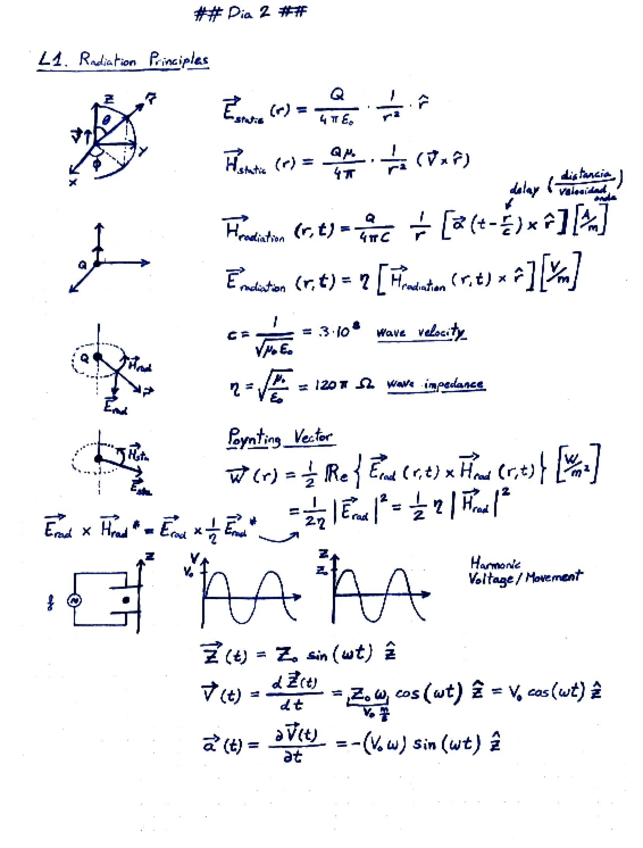 ## Dia 2 ##
L1. Radiation Principles
Z r⃗ θ V⃗ Y ϕ X
E⃗static (r) = Q / 4πε₀ · 1/r² · r̂
H⃗static (r) = Qμ₀ / 4π · 1/r² (V⃗ x r̂)
delay (distancia / velocidad onda)
H⃗radiation (r,t) = Q / 4πC 1/r [a⃗ (t - r/c) x r̂] [A/m]
Q
E⃗radiation (r,t) = η [H⃗radiation (r,t) x r̂] [V/m]
c = 1 / √μ₀ε₀ = 3·10⁸ wave velocity
Q H⃗rad r⃗ E⃗rad
η = √μ₀/ε₀ = 120π Ω wave impedance
Poynting Vector
H⃗sta E⃗sta
W⃗ (r) = 1/2 Re { E⃗rad (r,t) x H⃗rad (r,t) } [W/m²]
= 1/2η |E⃗rad|² = 1/2 η |H⃗rad|²
E⃗rad x H⃗rad* = E⃗rad x 1/η E⃗rad*
f Z V V₀ Z Z₀
Harmonic
Voltage/Movement
Z⃗ (t) = Z₀ sin (ωt) ẑ
V⃗ (t) = d Z⃗(t) / dt = Z₀ω cos (ωt) ẑ = V₀ cos (ωt) ẑ
V₀ m/s
a⃗ (t) = ∂V⃗(t) / ∂t = -(V₀ω) sin (ωt) ẑ